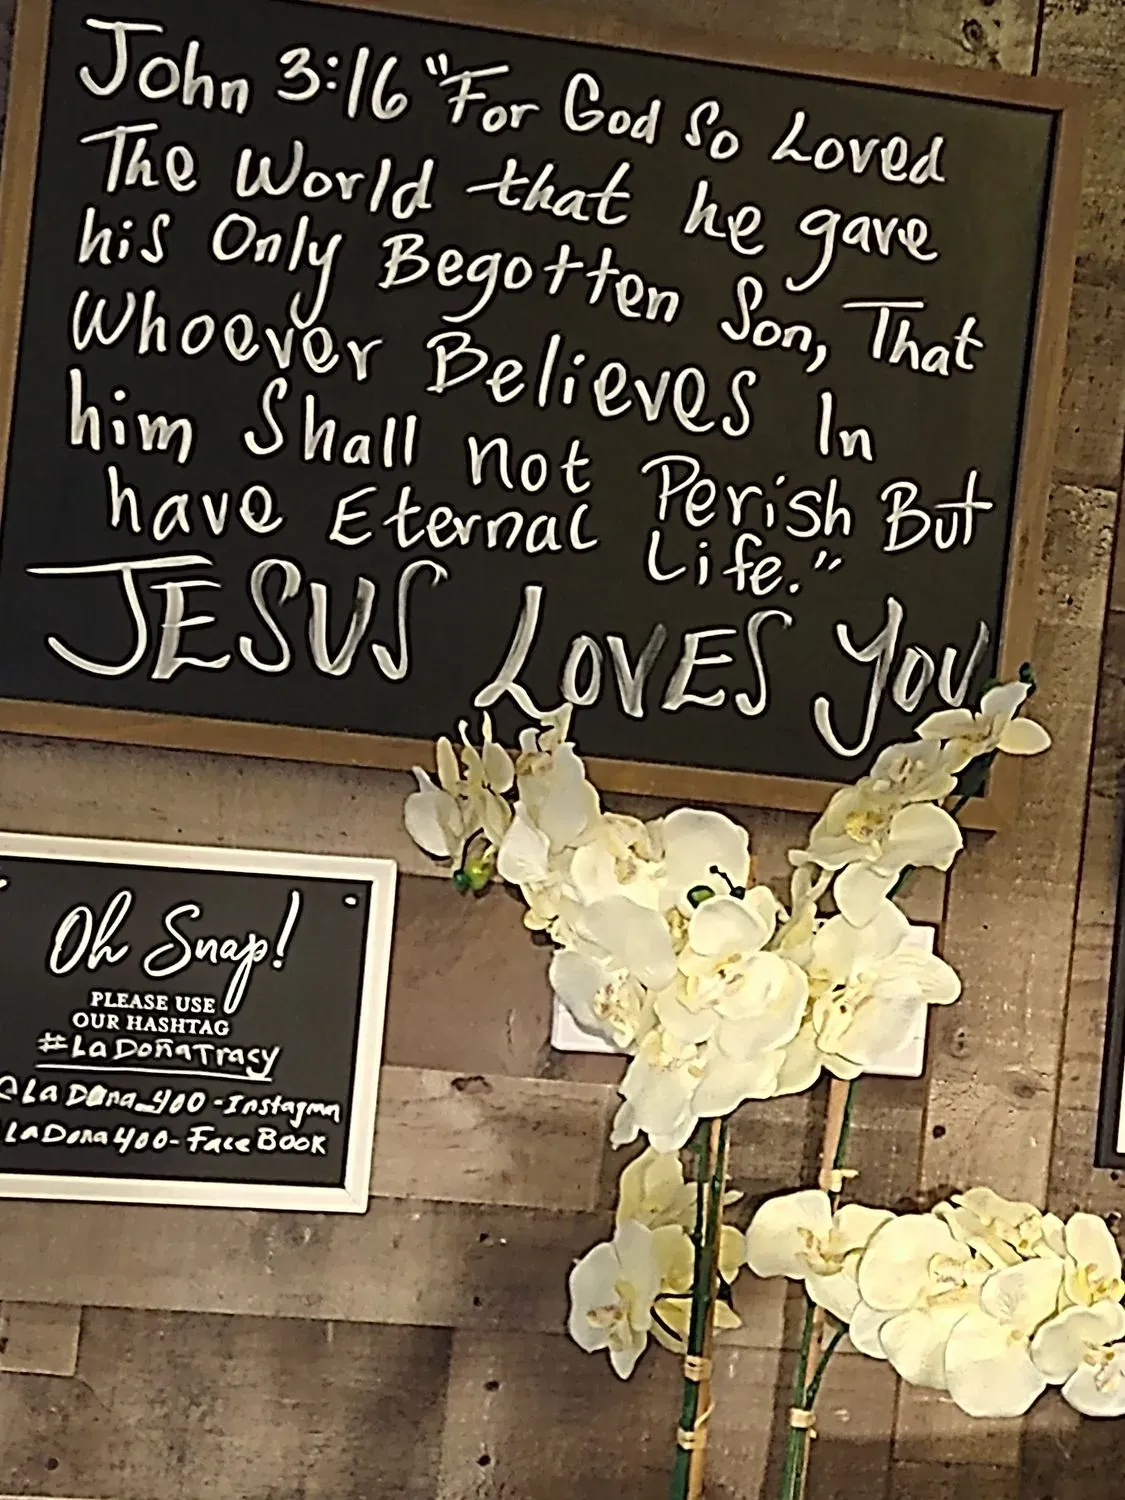 John 3:16 "For God So Loved
The World that he gave
his Only Begotten Son, That
Whoever Believes In
him Shall not Perish But
have Eternal Life."
JESUS LOVES YOU
Oh Snap!
PLEASE USE
OUR HASHTAG
#LaDoñaTracy
@La Dona_400 - Instagram
LaDona400 - FaceBook